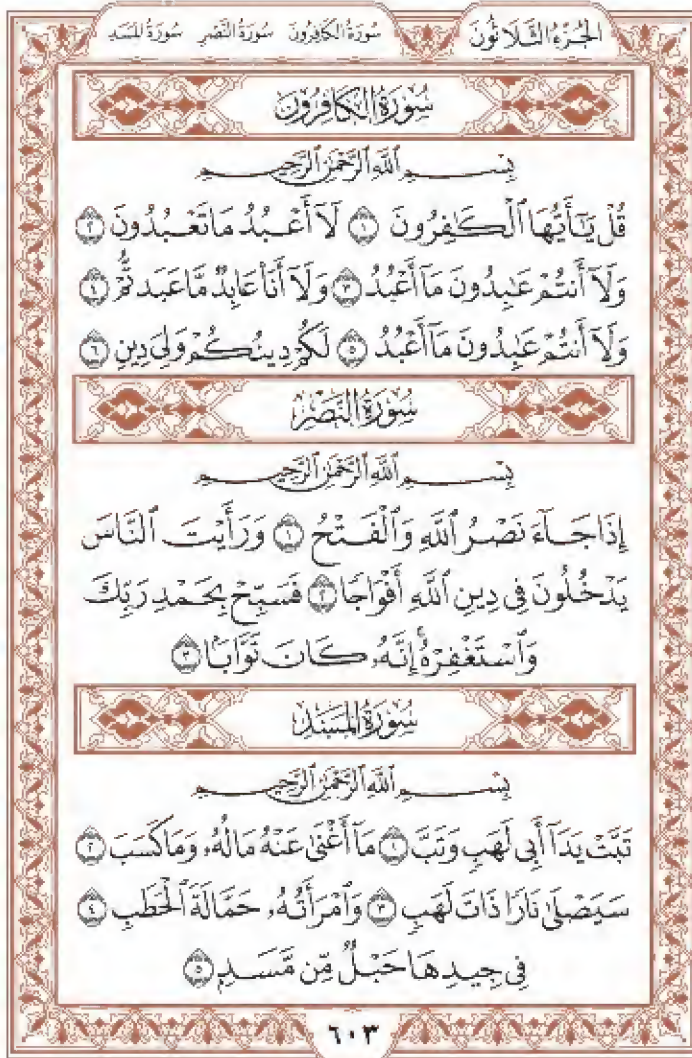 الجزء الثلاثون سورة الكافرون سورة النصر سورة المسد
سورة الكافرون
بِسْمِ ٱللَّهِ ٱلرَّحْمَٰنِ ٱلرَّحِيمِ
قُلْ يَٰٓأَيُّهَا ٱلْكَٰفِرُونَ ١ لَآ أَعْبُدُ مَا تَعْبُدُونَ ٢
وَلَآ أَنتُمْ عَٰبِدُونَ مَآ أَعْبُدُ ٣ وَلَآ أَنَا۠ عَابِدٌ مَّا عَبَدتُّمْ ٤
وَلَآ أَنتُمْ عَٰبِدُونَ مَآ أَعْبُدُ ٥ لَكُمْ دِينُكُمْ وَلِىَ دِينِ ٦
سورة النصر
بِسْمِ ٱللَّهِ ٱلرَّحْمَٰنِ ٱلرَّحِيمِ
إِذَا جَآءَ نَصْرُ ٱللَّهِ وَٱلْفَتْحُ ١ وَرَأَيْتَ ٱلنَّاسَ
يَدْخُلُونَ فِى دِينِ ٱللَّهِ أَفْوَاجًا ٢ فَسَبِّحْ بِحَمْدِ رَبِّكَ
وَٱسْتَغْفِرْهُ ۚ إِنَّهُۥ كَانَ تَوَّابًۢا ٣
سورة المسد
بِسْمِ ٱللَّهِ ٱلرَّحْمَٰنِ ٱلرَّحِيمِ
تَبَّتْ يَدَآ أَبِى لَهَبٍ وَتَبَّ ١ مَآ أَغْنَىٰ عَنْهُ مَالُهُۥ وَمَا كَسَبَ ٢
سَيَصْلَىٰ نَارًا ذَاتَ لَهَبٍ ٣ وَٱمْرَأَتُهُۥ حَمَّالَةَ ٱلْحَطَبِ ٤
فِى جِيدِهَا حَبْلٌ مِّن مَّسَدٍۭ ٥
٦٠٣